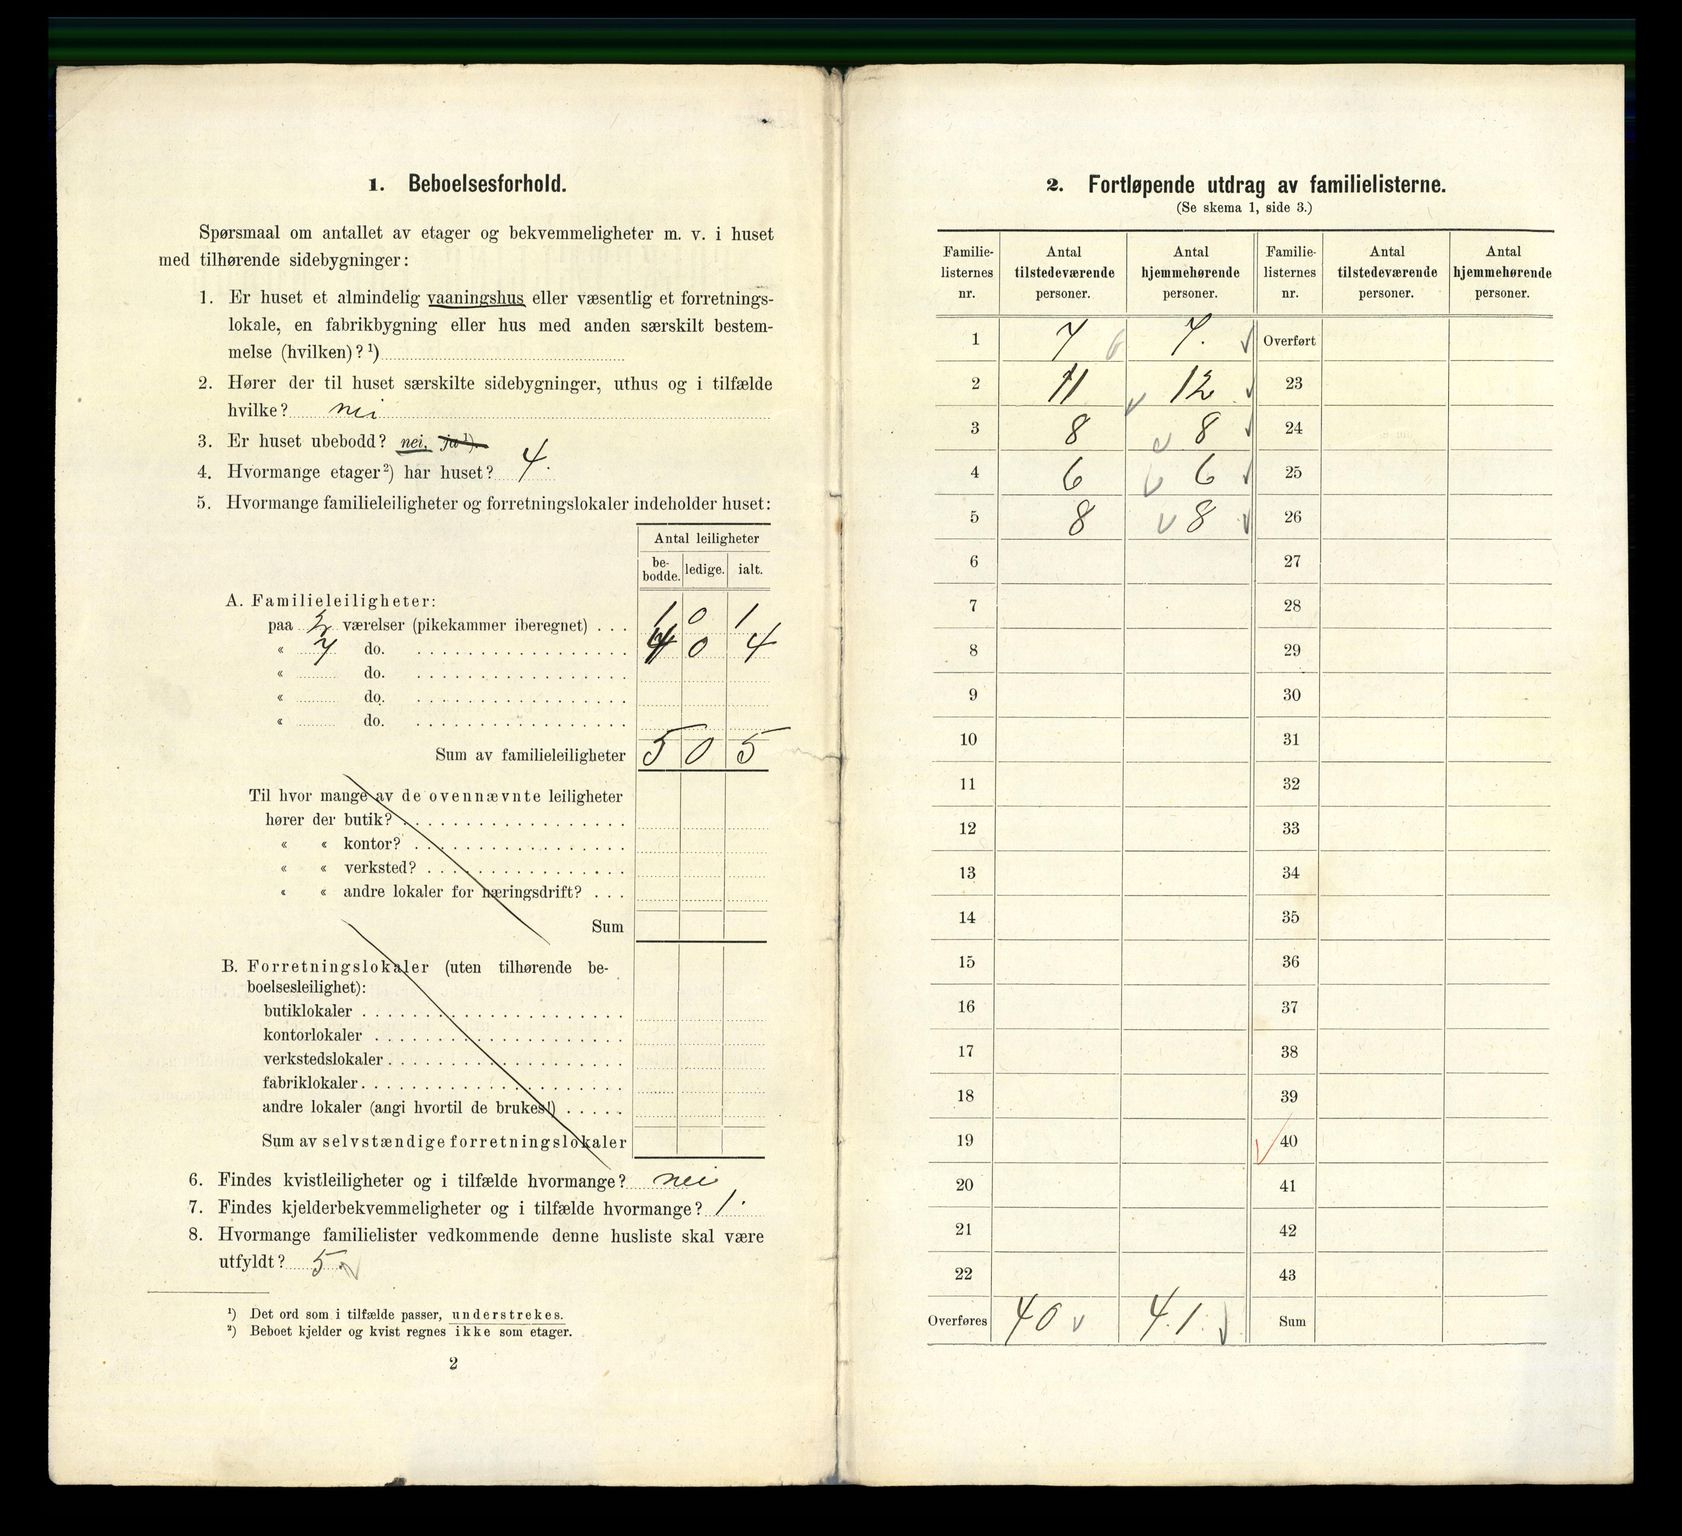 1. Beboelsesforhold.
Spørsmaal om antallet av etager og bekvemmeligheter m. v. i huset
med tilhørende sidebygninger:
1. Er huset et almindelig vaaningshus eller væsentlig et forretnings-
lokale, en fabrikbygning eller hus med anden særskilt bestem-
melse (hvilken)?¹)
2. Hører der til huset særskilte sidebygninger, uthus og i tilfælde
hvilke? nei
3. Er huset ubebodd? nei, ja¹).
4. Hvormange etager²) har huset? 4.
5. Hvormange familieleiligheter og forretningslokaler indeholder huset:
Antal leiligheter
be-bodde. ledige. ialt.
A. Familieleiligheter:
paa værelser (pikekammer iberegnet) . . . 1 0 1
« 7 do. 4 0 4
« do.
« do.
« do.
Sum av familieleiligheter 5 0 5
Til hvor mange av de ovennævnte leiligheter
hører der butik?
« « kontor?
« « verksted?
« « andre lokaler for næringsdrift? . . .
Sum
B. Forretningslokaler (uten tilhørende be-
boelsesleilighet):
butiklokaler
kontorlokaler
verkstedslokaler
fabriklokaler
andre lokaler (angi hvortil de brukes!)
Sum av selvstændige forretningslokaler
6. Findes kvistleiligheter og i tilfælde hvormange? nei
7. Findes kjelderbekvemmeligheter og i tilfælde hvormange? 1.
8. Hvormange familielister vedkommende denne husliste skal være
utfyldt? 5
¹) Det ord som i tilfælde passer, understrekes.
²) Beboet kjelder og kvist regnes ikke som etager.
2
2. Fortløpende utdrag av familielisterne.
(Se skema 1, side 3.)
Familie-listernes nr. Antal tilstedeværende personer. Antal hjemmehørende personer. Familie-listernes nr. Antal tilstedeværende personer. Antal hjemmehørende personer.
1 7 7. Overført
2 11 12 23
3 8 8 24
4 6 6 25
5 8 8 26
6 27
7 28
8 29
9 30
10 31
11 32
12 33
13 34
14 35
15 36
16 37
17 38
18 39
19 40
20 41
21 42
22 43
Overføres 40 41. Sum